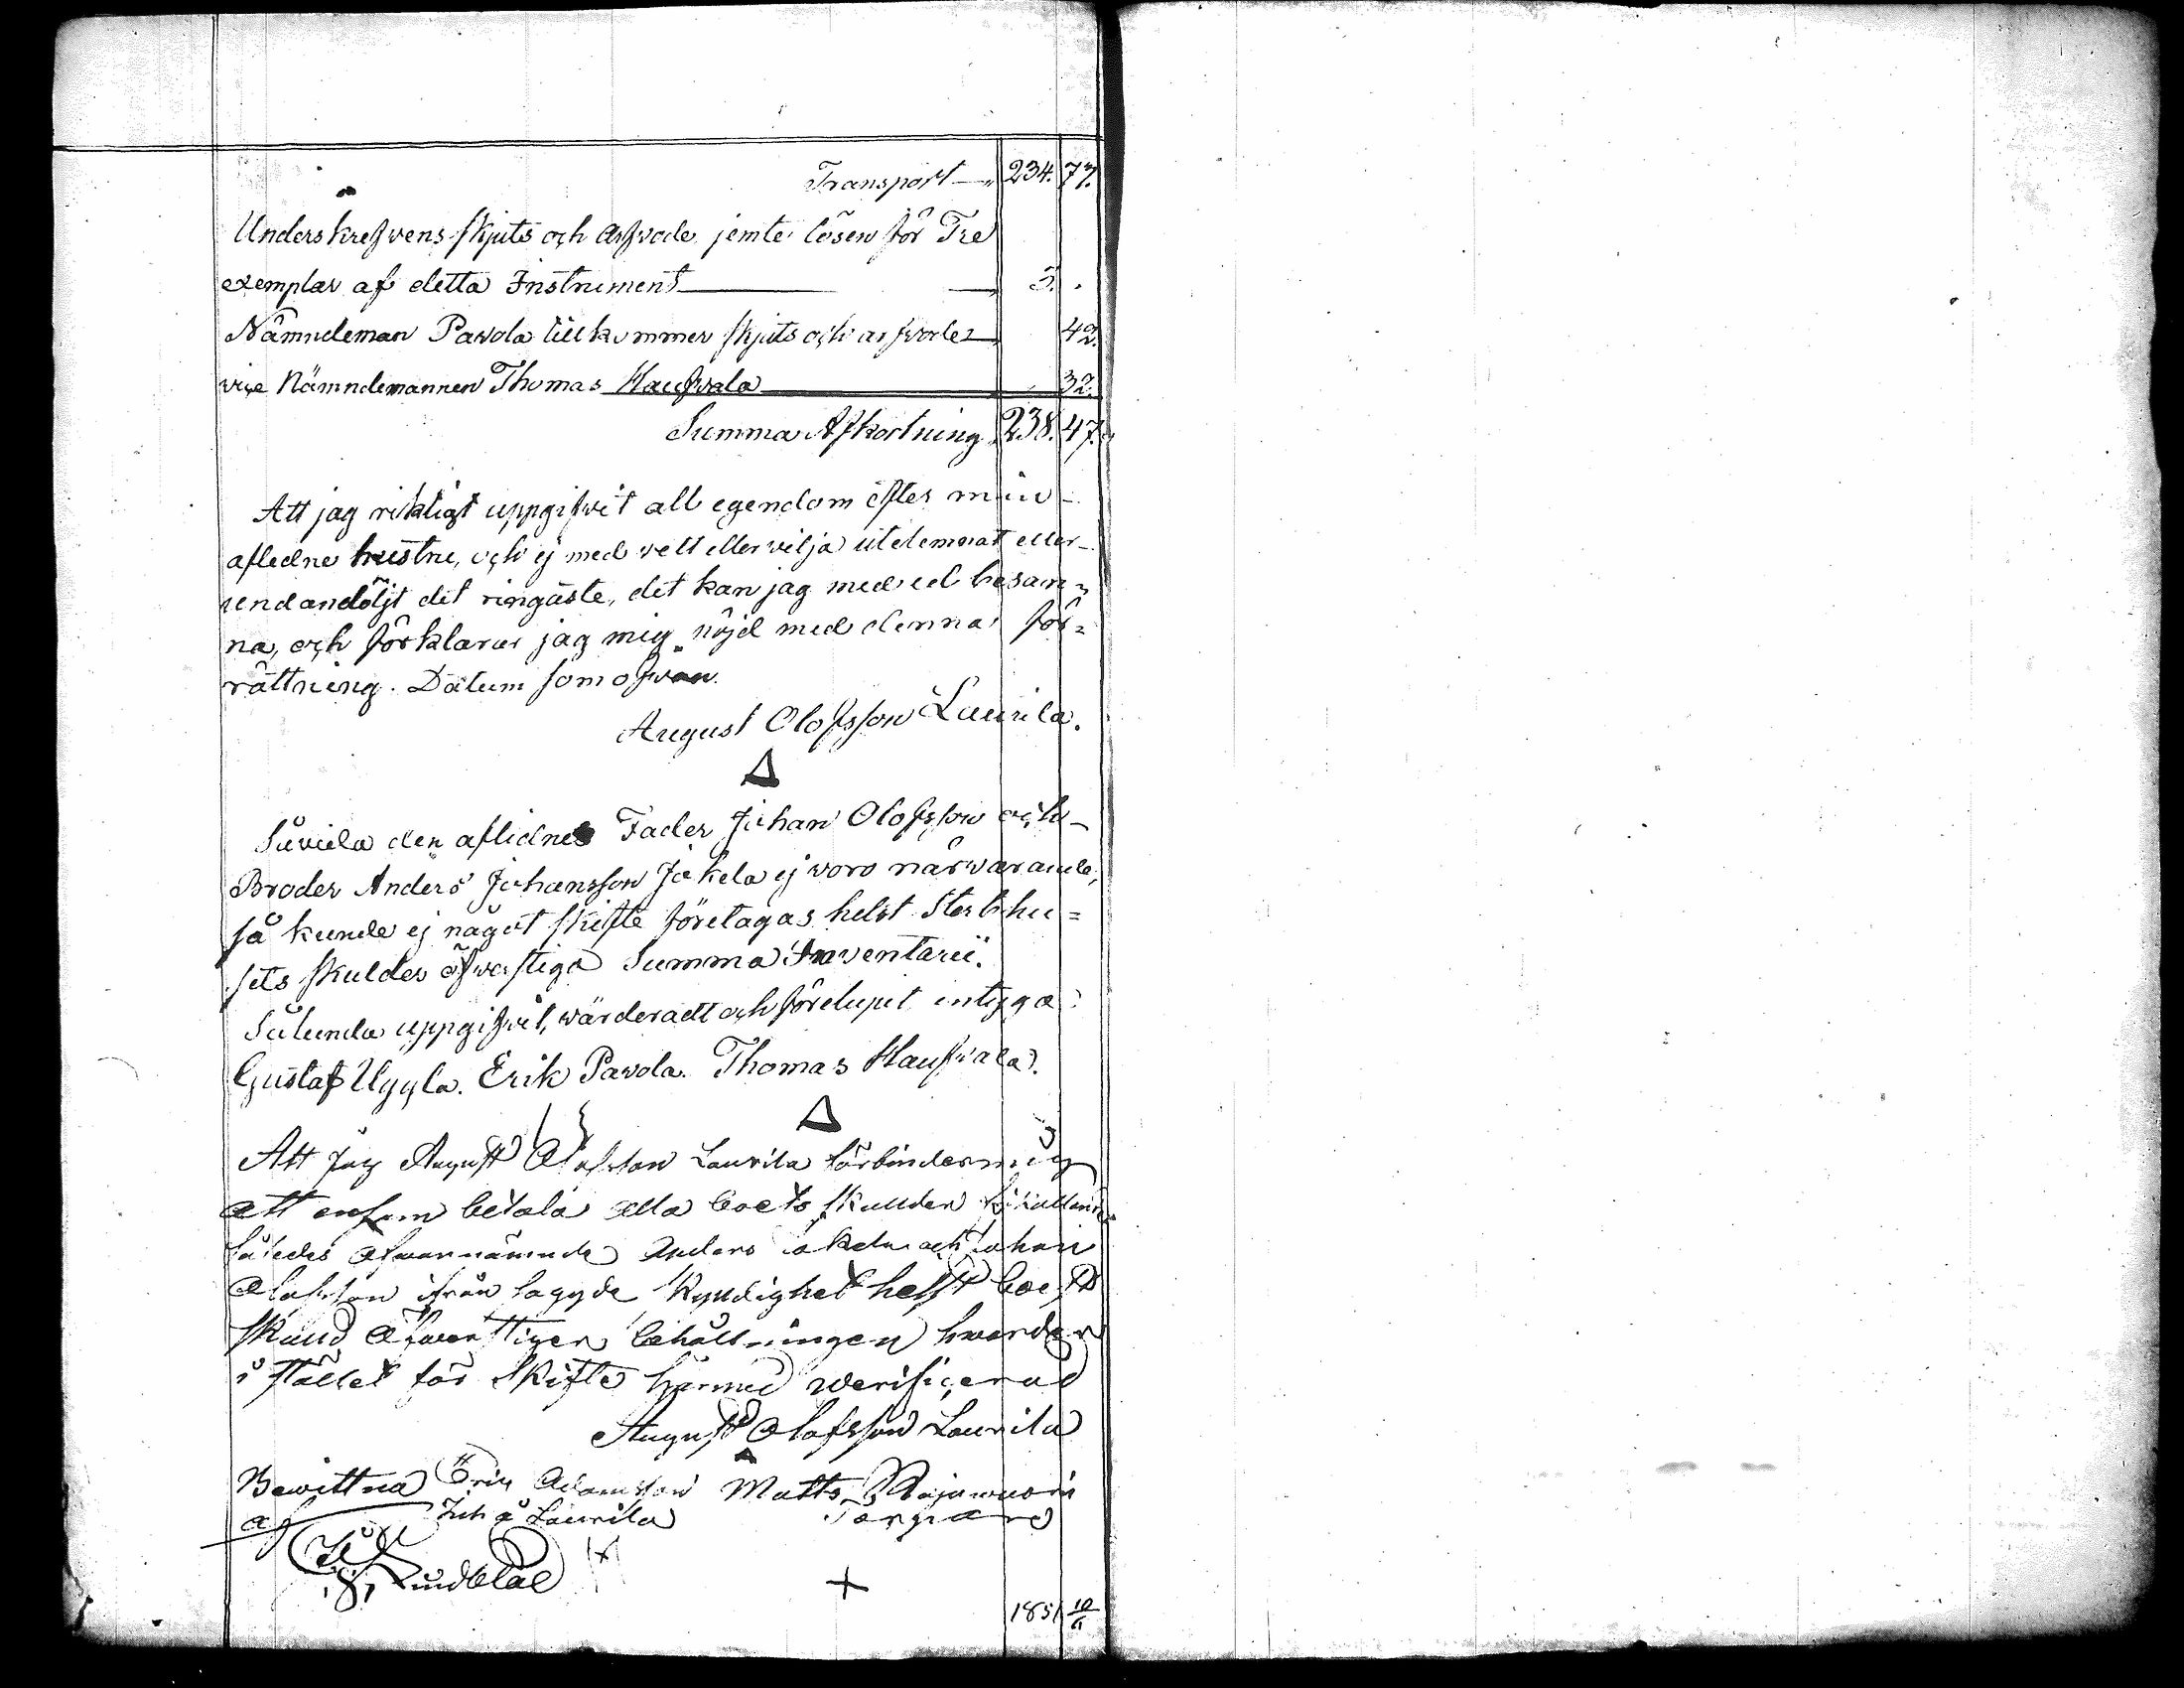 Transport 234. 77.
Underskrefwens skjuts och arfwode jemte lösen för Tre
exemplar af detta Instrument 3. .
Nämndeman Pavola tillkommer skjuts och arfwode 42.
vice Nämndemannen Thomas Haufwala 32.
Summa Afkortning 238. 47.
Att jag riktigt uppgifwit all egendom efter min
aflidne hustru, och ej med vett eller vilja utelemnat eller
undandöljt det ringaste, det kan jag med ed besan=
na, och förklarar jag mig nöjd med denna för=
rättning. Datum som ofwan.
August Olofsson Laurila.
Såvida den aflidnes Fader Johan Olofsson och
Broder Anders Johansson Jokela ej woro närwarande,
så kunde ej något skifte företagas helst Sterbhu=
sets skulder öfwerstiga Summa Inventarii.
Sålunda uppgifwit, wärderadt och förelupit intyga:
Gustaf Uggla. Erik Pavola. Thomas Haufwala.
Att jag August Olofsson Laurila förbinder mig
att ensam betala alla boets skulder
således ofwannämnde Anders Jokela och Johan
Olofsson ifrån laggde skyldighet helst boets
skuld öfwerstiger behållningen hwarder
i stället för skifte härmed werificerad
August Olofsson Laurila
Bewittna Eric Adamsson Matts
af Juh a Laurila
Lindblad
+
1851 10/6